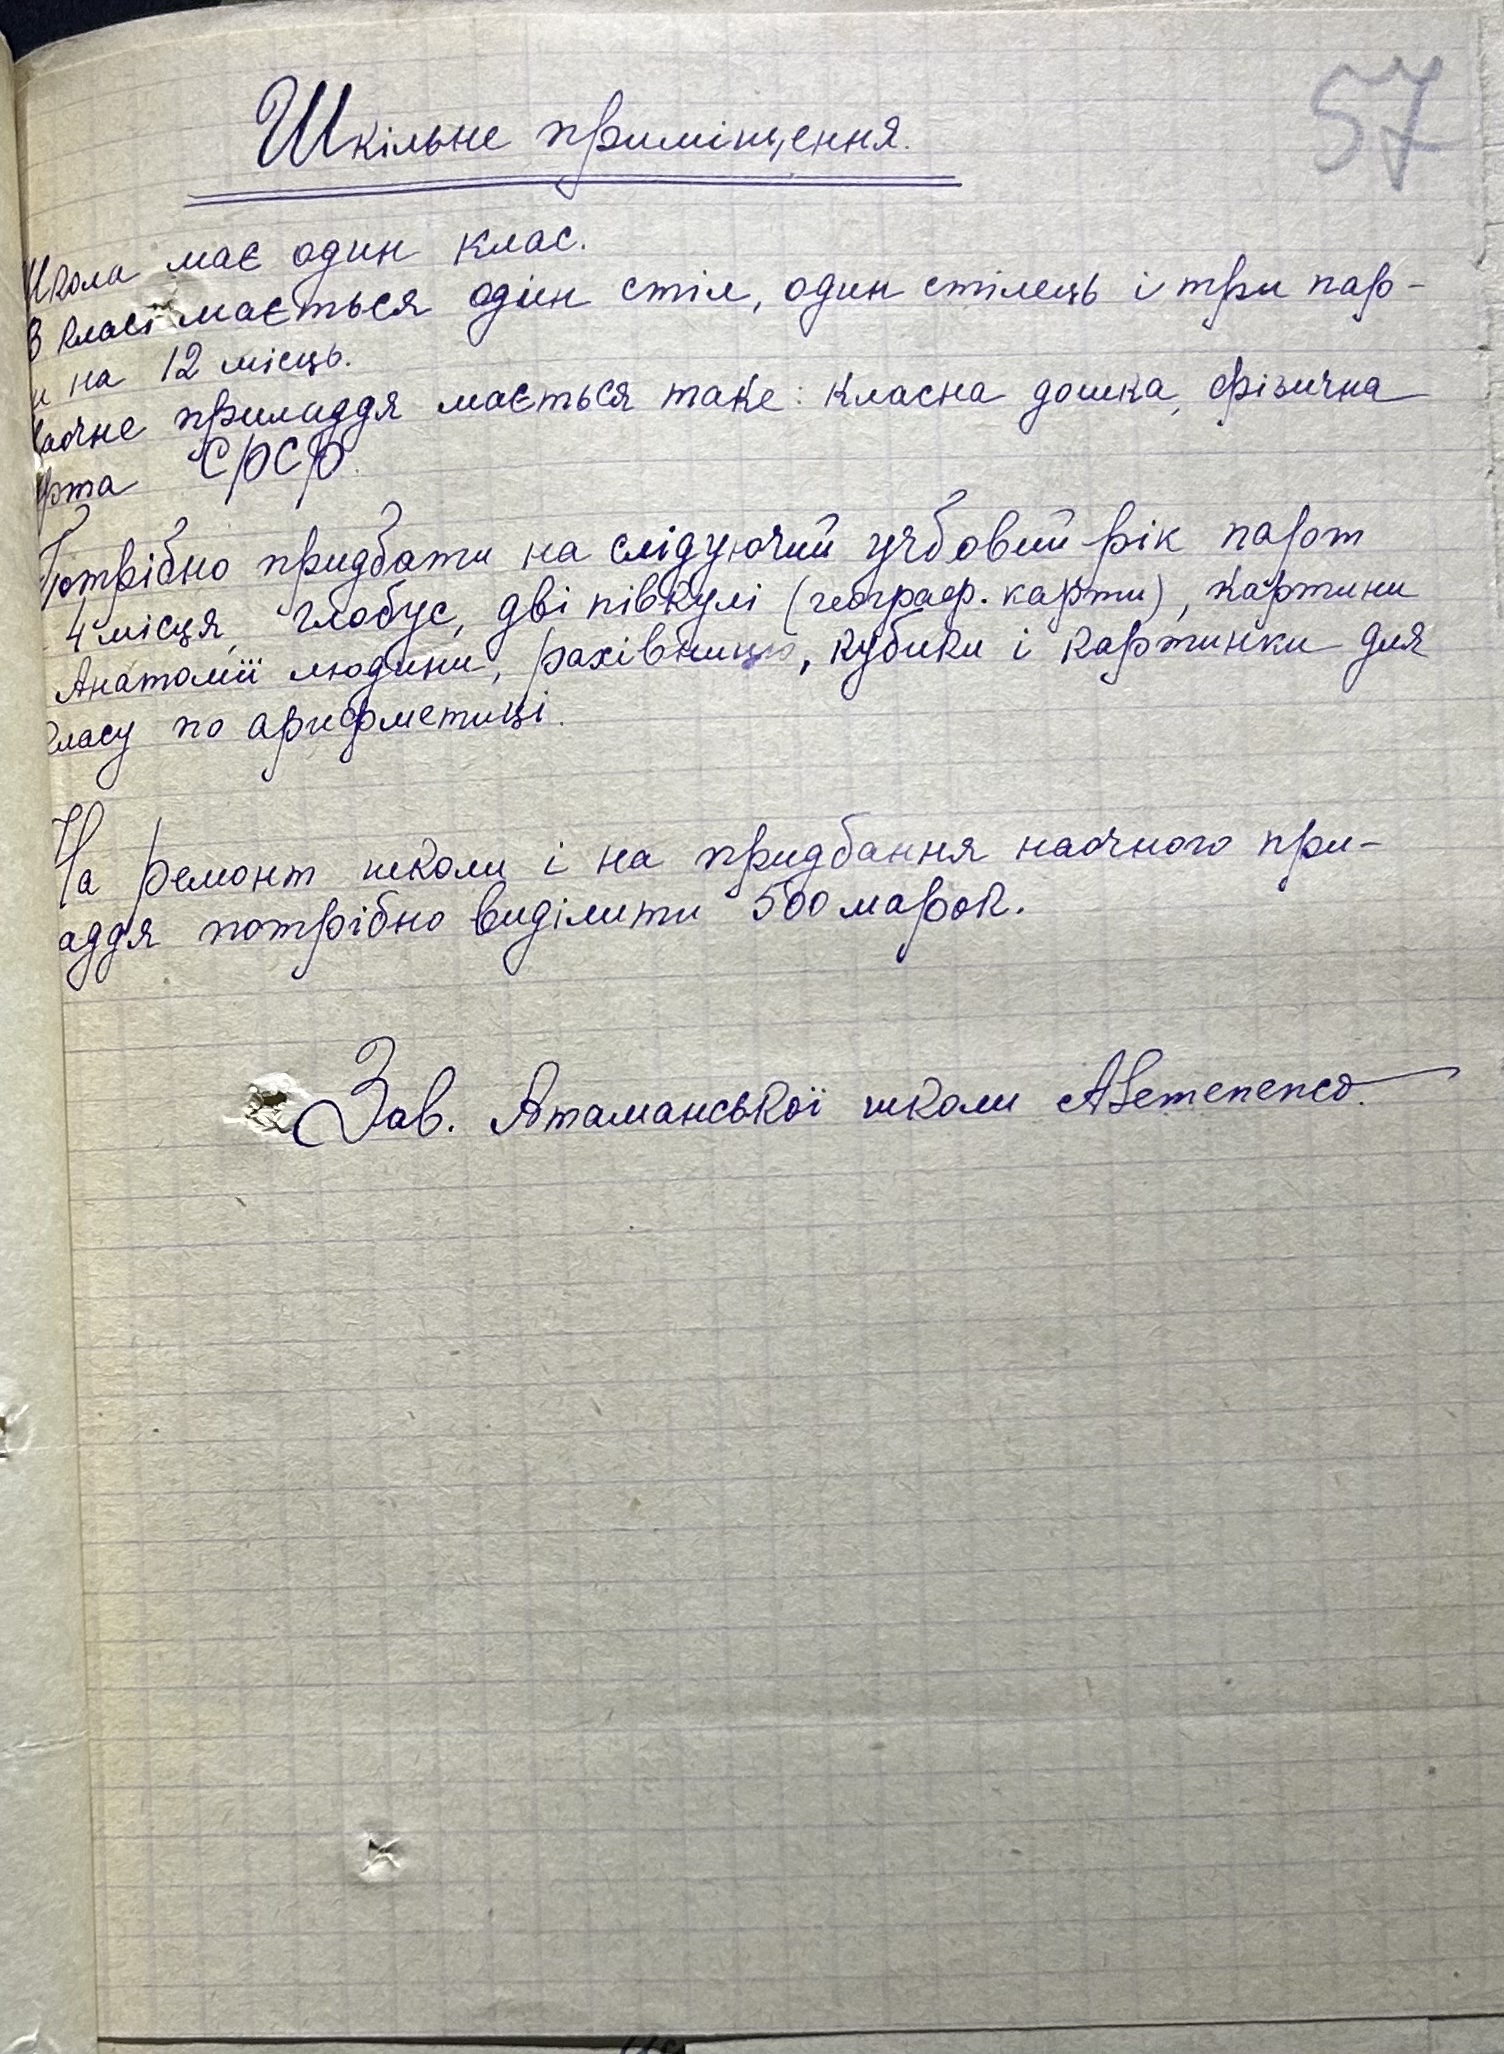 57
Шкільне приміщення.
Школа має один клас.
В класі мається один стіл, один стілець і три пар-
и на 12 місць.
аочне приладдя мається таке: класна дошка, фізична
рта СРСР.
Потрібно придбати на слідуючий учбовий рік парт
4 місця, глобус, дві півкулі (географ. карти), картини
Анатомії людини, рахівницю, кубики і картинки для
класу по арифметиці.
На ремонт школи і на придбання наочного при-
аддя потрібно виділити 500 марок.
Зав. Атаманської школи